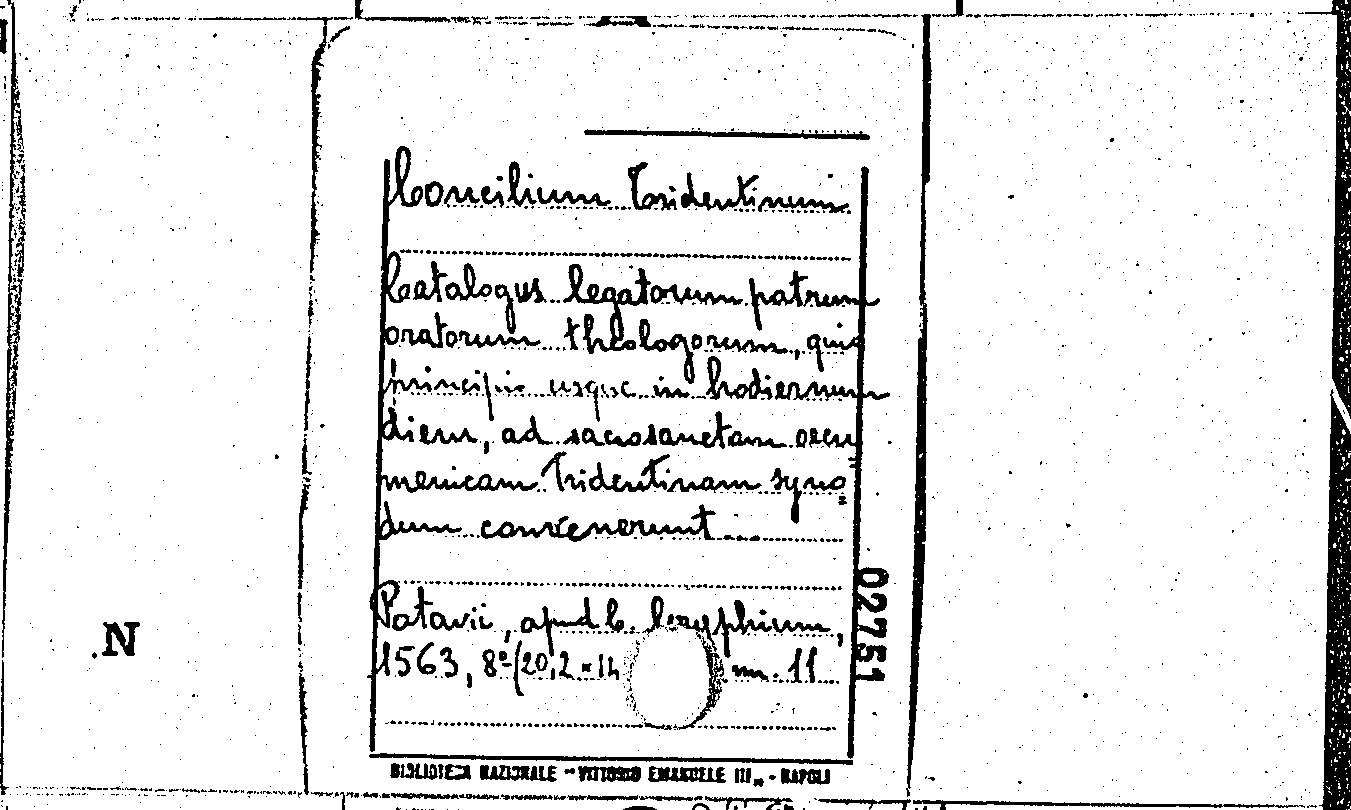 Concilium Tridentinum
Catalogus legatorum patrum
oratorum theologorum, qui a
principio usque in hodiernum
diem, ad sacrosanctam oecu
menicam Tridentinam syno=
dum convenerunt...
Patavii, apud C.
1563, 8º (20,2 × 14 nn. 11
02751
.N
BIBLIOTECA NAZIONALE "VITTORIO EMANUELE III" - NAPOLI